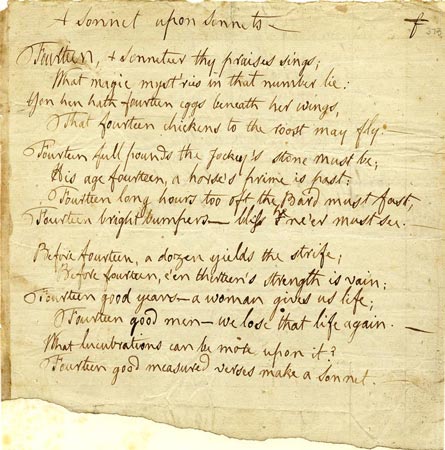 A Sonnet upon Sonnets —
Fourteen, a sonneteer thy praises sings;
What magic myst'ries in that number lie!
Yon hen hath fourteen eggs beneath her wings,
That fourteen chickens to the roost may fly. —
Fourteen full pounds the Jockey's stone must be;
His age fourteen, a horse's prime is past;
Fourteen long hours too oft the Bard must fast,
Fourteen bright bumpers — bliss he ne'er must see.
Before fourteen, a dozen yields the strife;
Before fourteen, e'en thirteen's strength is vain;
Fourteen good years — a woman gives us life;
Fourteen good men — we lose that life again. —
What lucubrations can be more upon it?
Fourteen good measured verses make a sonnet.